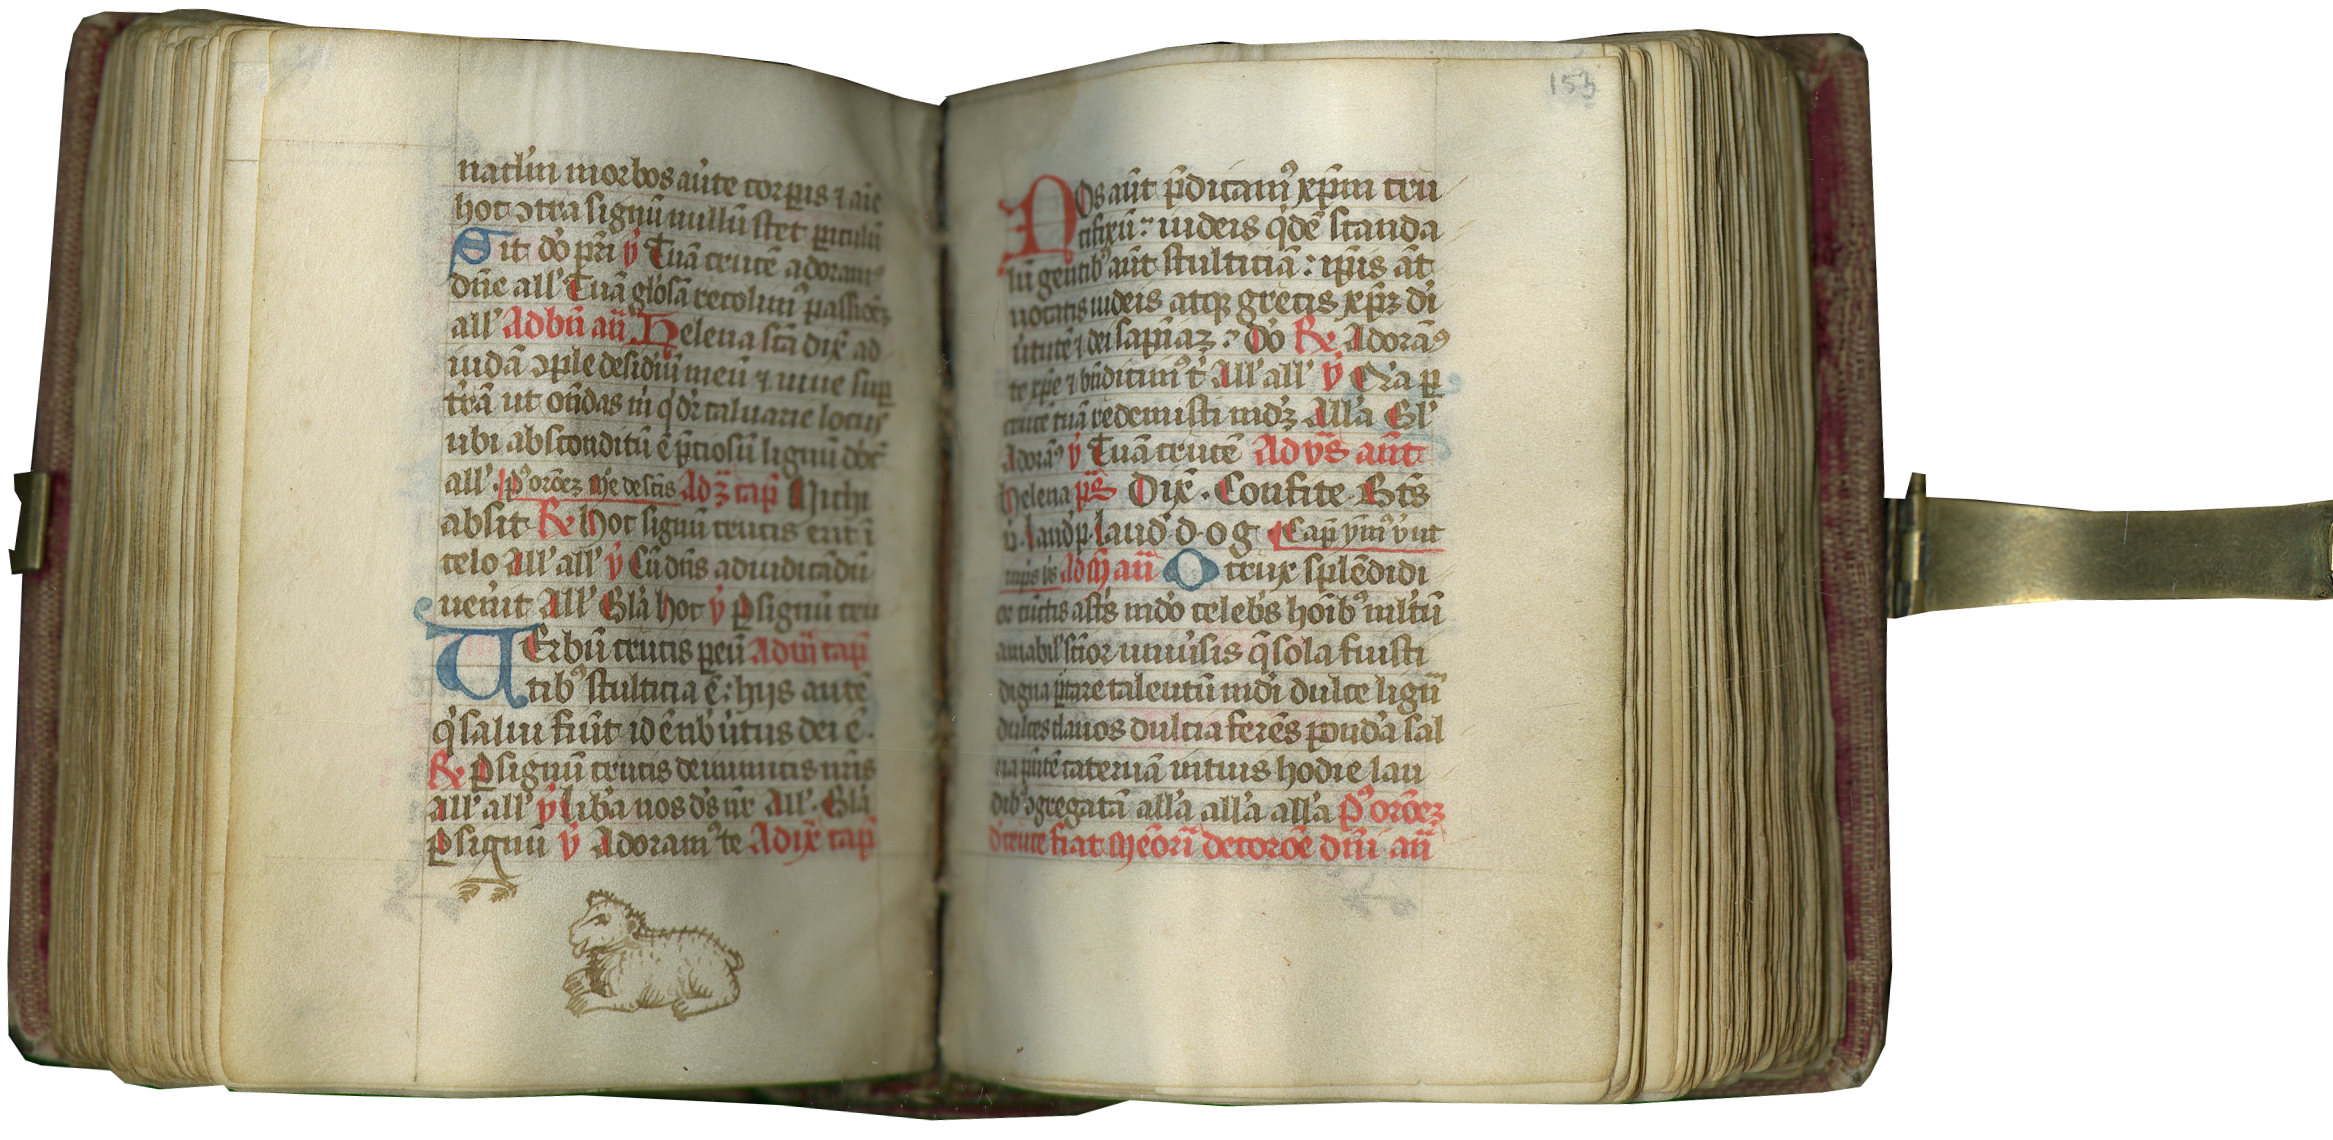 morbos aūte corꝑis ⁊ aīe
hoc ꝯtra signū nullū stet ꝑiculū
Sit dō pr̄i ꝟ Tuā crucē adoram⁹
dn̄e all' Tuā gl̓osā recolim⁹ passiōeꝫ
all' Ad bn̄ an̄ Helena sc̄a dix̄ ad
iudā ꝯple desid̓iū meū ⁊ uiue suꝑ
t̓rā ut on̄das m̓ q̓ dr̄ caluarie locus
ubi absconditū ē p̄ciosū lignū
all'. de sc̄is Ad ꝫ cap̄ Michi
absit ℞ hoc signū crucis erit ī
celo All' all' ꝟ Cū dn̄s ad iudicādū
uen̓it All' Gl̓a hoc ꝟ ꝑ signū cru
UErbū crucis ꝑeū Ad vj̄ cap̄
tib⁹ stulticia ē: hijs autē
q̓ salui fiūt id ē nb̓ u̓tus dei ē.
℞ ꝑ signū crucis de inimicis nr̄is
all' all' ꝟ lib̓a nos d̓s nr̄ All'. Gl̓a
ꝑ signū ꝟ Adoram⁹ te Ad ix̄ cap̄
153
NOs aūt p̄dicam⁹ xp̄m cru
cifixū: iudeis q̓dē scanda
lū gentib⁹ aūt stulticiā: ip̄is āt
uocatis iudeis atqꝫ grecis xp̄ꝫ dī
u̓tutē ⁊ dei sapn̄aꝫ: Dō ℞ Adoram⁹
te xp̄e ⁊ bn̄dicim⁹ t̓ All' all' ꝟ Q̓a ꝑ
crucē tuā redemisti md̓ꝫ All̓a Gl'
Adoram⁹ ꝟ Tuā crucē Ad vs̄ an̄t
helena ps̄ Dix̄. Confite. Bt̄s
laud p. laud d. og Cap̄ ym⁹
Ad M an̄ O crux splēdidi
or cūctis ast̓s md̓o celeb̓s hoīb⁹ ml̓tū
amabil' sc̄ior uniu̓sis q̄ sola fuisti
digna p̓tare talentū mdi dulce lignū
dulces clauos dulcia ferēs pond̓a sal
ua p̄ntē cateruā in tuis hodie lau
dib⁹ ꝯgregatā all̓a all̓a all̓a P⁹ orōeꝫ
d̓ cruce fiat Mēori de corōe dn̄i an̄